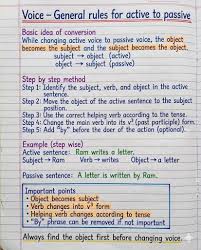 Voice – General rules for active to passive
Basic idea of conversion
While changing active voice to passive voice, the object
becomes the subject and the subject becomes the object.
subject → object (active)
object → subject (passive)
Step by step method
Step 1: Identify the subject, verb, and object in the active
sentence.
Step 2: Move the object of the active sentence to the subject
position.
Step 3: Use the correct helping verb according to the tense.
Step 4: Change the main verb into its v³ (past participle) form.
Step 5: Add "by" before the doer of the action (optional).
Example (step wise)
Active sentence: Ram writes a letter.
Subject → Ram Verb → writes Object → a letter
Passive sentence: A letter is written by Ram.
Important points
• Object becomes subject
• Verb changes into v³ form
• Helping verb changes according to tense
• "By" phrase can be removed if not important
Always find the object first before changing voice.